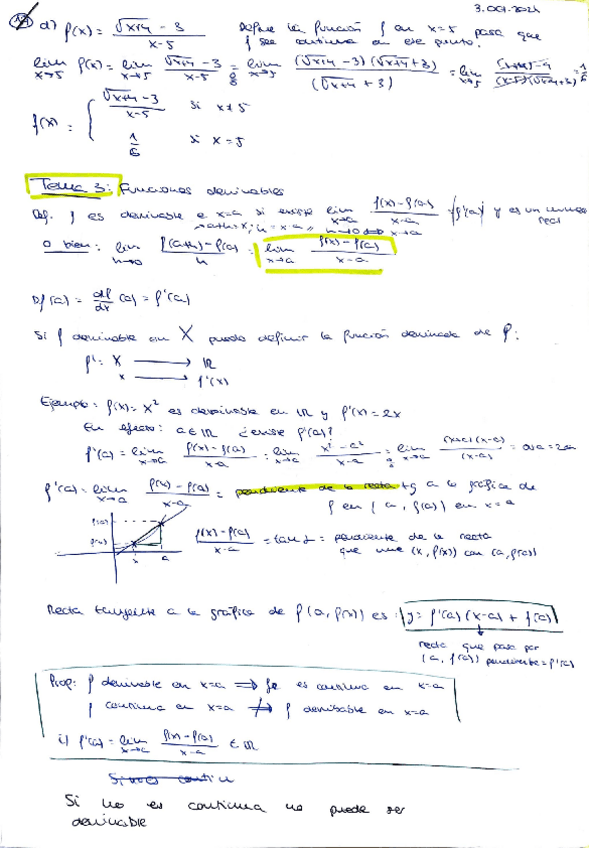 3-Oct-2024
d) f(x) = (√(x+4) - 3)/(x-5) Define la función f en x=5 para que
f sea continua en ese punto.
lim x→5 f(x) = lim x→5 (√(x+4) - 3)/(x-5) = lim x→5 (√(x+4) - 3)(√(x+4) + 3)/(√(x+4) + 3) = lim x→5 = 1/6
f(x) = { (√(x+4) - 3)/(x-5) si x≠5
1/6 si x=5
Tema 3: Funciones derivables
Def. f es derivable e x=a si existe lim x→a (f(x)-f(a))/(x-a) (f'(a)) y es un numero
real
O bien: lim h→0 (f(a+h)-f(a))/h = lim x→a (f(x)-f(a))/(x-a)
Df(a) = df/dx (a) = f'(a)
Si f derivable en X puedo definir la función derivada de f:
f': X → ℝ
x → f'(x)
Ejemplo: f(x)=x² es derivable en ℝ y f'(x)=2x
En efecto: a∈ℝ ¿existe f'(a)?
f'(a) = lim x→a (f(x)-f(a))/(x-a) = lim x→a (x²-a²)/(x-a) = lim x→a (x+a)(x-a)/(x-a) = a+a = 2a
f'(a) = lim x→a (f(x)-f(a))/(x-a) = pendiente de la recta tg a la gráfica de
f en (a, f(a)) en x=a
f(a)
f(x)
x a
(f(x)-f(a))/(x-a) = tan = pendiente de la recta
que une (x, f(x)) con (a, f(a))
Recta tangente a la gráfica de f(a, f(x)) es: y = f'(a)(x-a) + f(a)
recta que pasa por
(a, f(a)) pendiente = f'(a)
Prop: f derivable en x=a ⟹ f es continua en x=a
f continua en x=a ⇏ f derivable en x=a
i) f'(a) = lim x→a (f(x)-f(a))/(x-a) ∈ ℝ
Si no es continua no puede ser
derivable